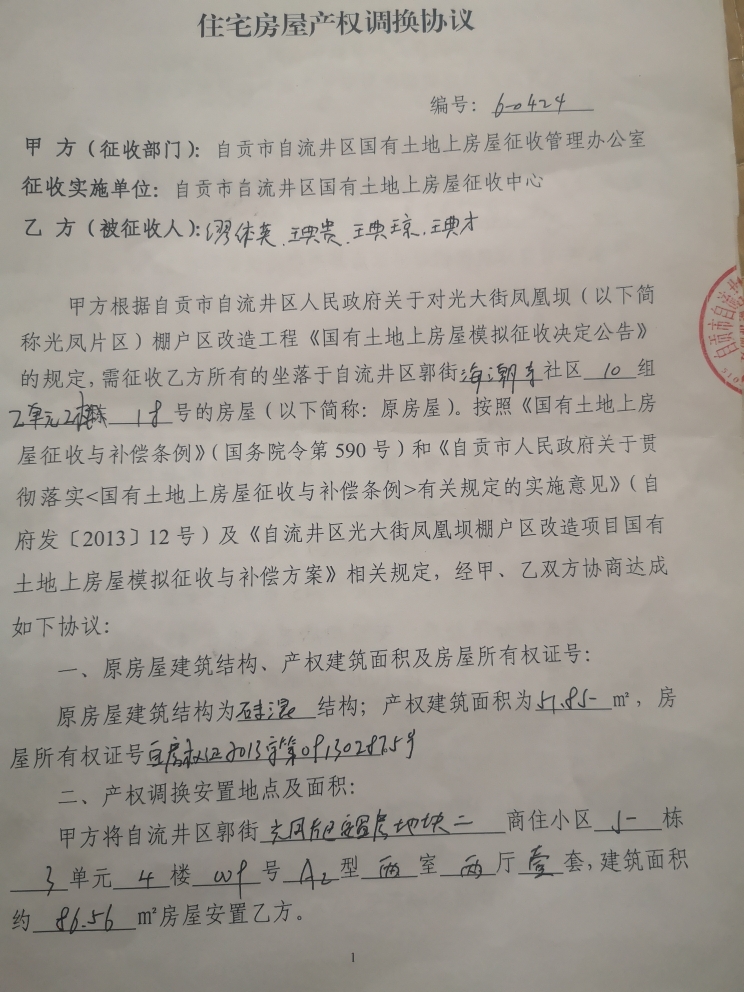 住宅房屋产权调换协议
编号：6-0424
甲 方（征收部门）：自贡市自流井区国有土地上房屋征收管理办公室
征收实施单位：自贡市自流井区国有土地上房屋征收中心
乙 方（被征收人）：
甲方根据自贡市自流井区人民政府关于对光大街凤凰坝（以下简
称光凤片区）棚户区改造工程《国有土地上房屋模拟征收决定公告》
的规定，需征收乙方所有的坐落于自流井区郭街海潮寺社区 10 组
号的房屋（以下简称：原房屋）。按照《国有土地上房
屋征收与补偿条例》（国务院令第 590 号）和《自贡市人民政府关于贯
彻落实<国有土地上房屋征收与补偿条例>有关规定的实施意见》（自
府发〔2013〕12 号）及《自流井区光大街凤凰坝棚户区改造项目国有
土地上房屋模拟征收与补偿方案》相关规定，经甲、乙双方协商达成
如下协议：
一、原房屋建筑结构、产权建筑面积及房屋所有权证号：
原房屋建筑结构为硅混 结构；产权建筑面积为51.85 m²，房
屋所有权证号
二、产权调换安置地点及面积：
甲方将自流井区郭街光凤片区安置房地块二 商住小区 5 栋
3 单元 4 楼 号 A2 型 两 室 两 厅 壹 套，建筑面积
约 86.56 m²房屋安置乙方。
1
自贡市自流